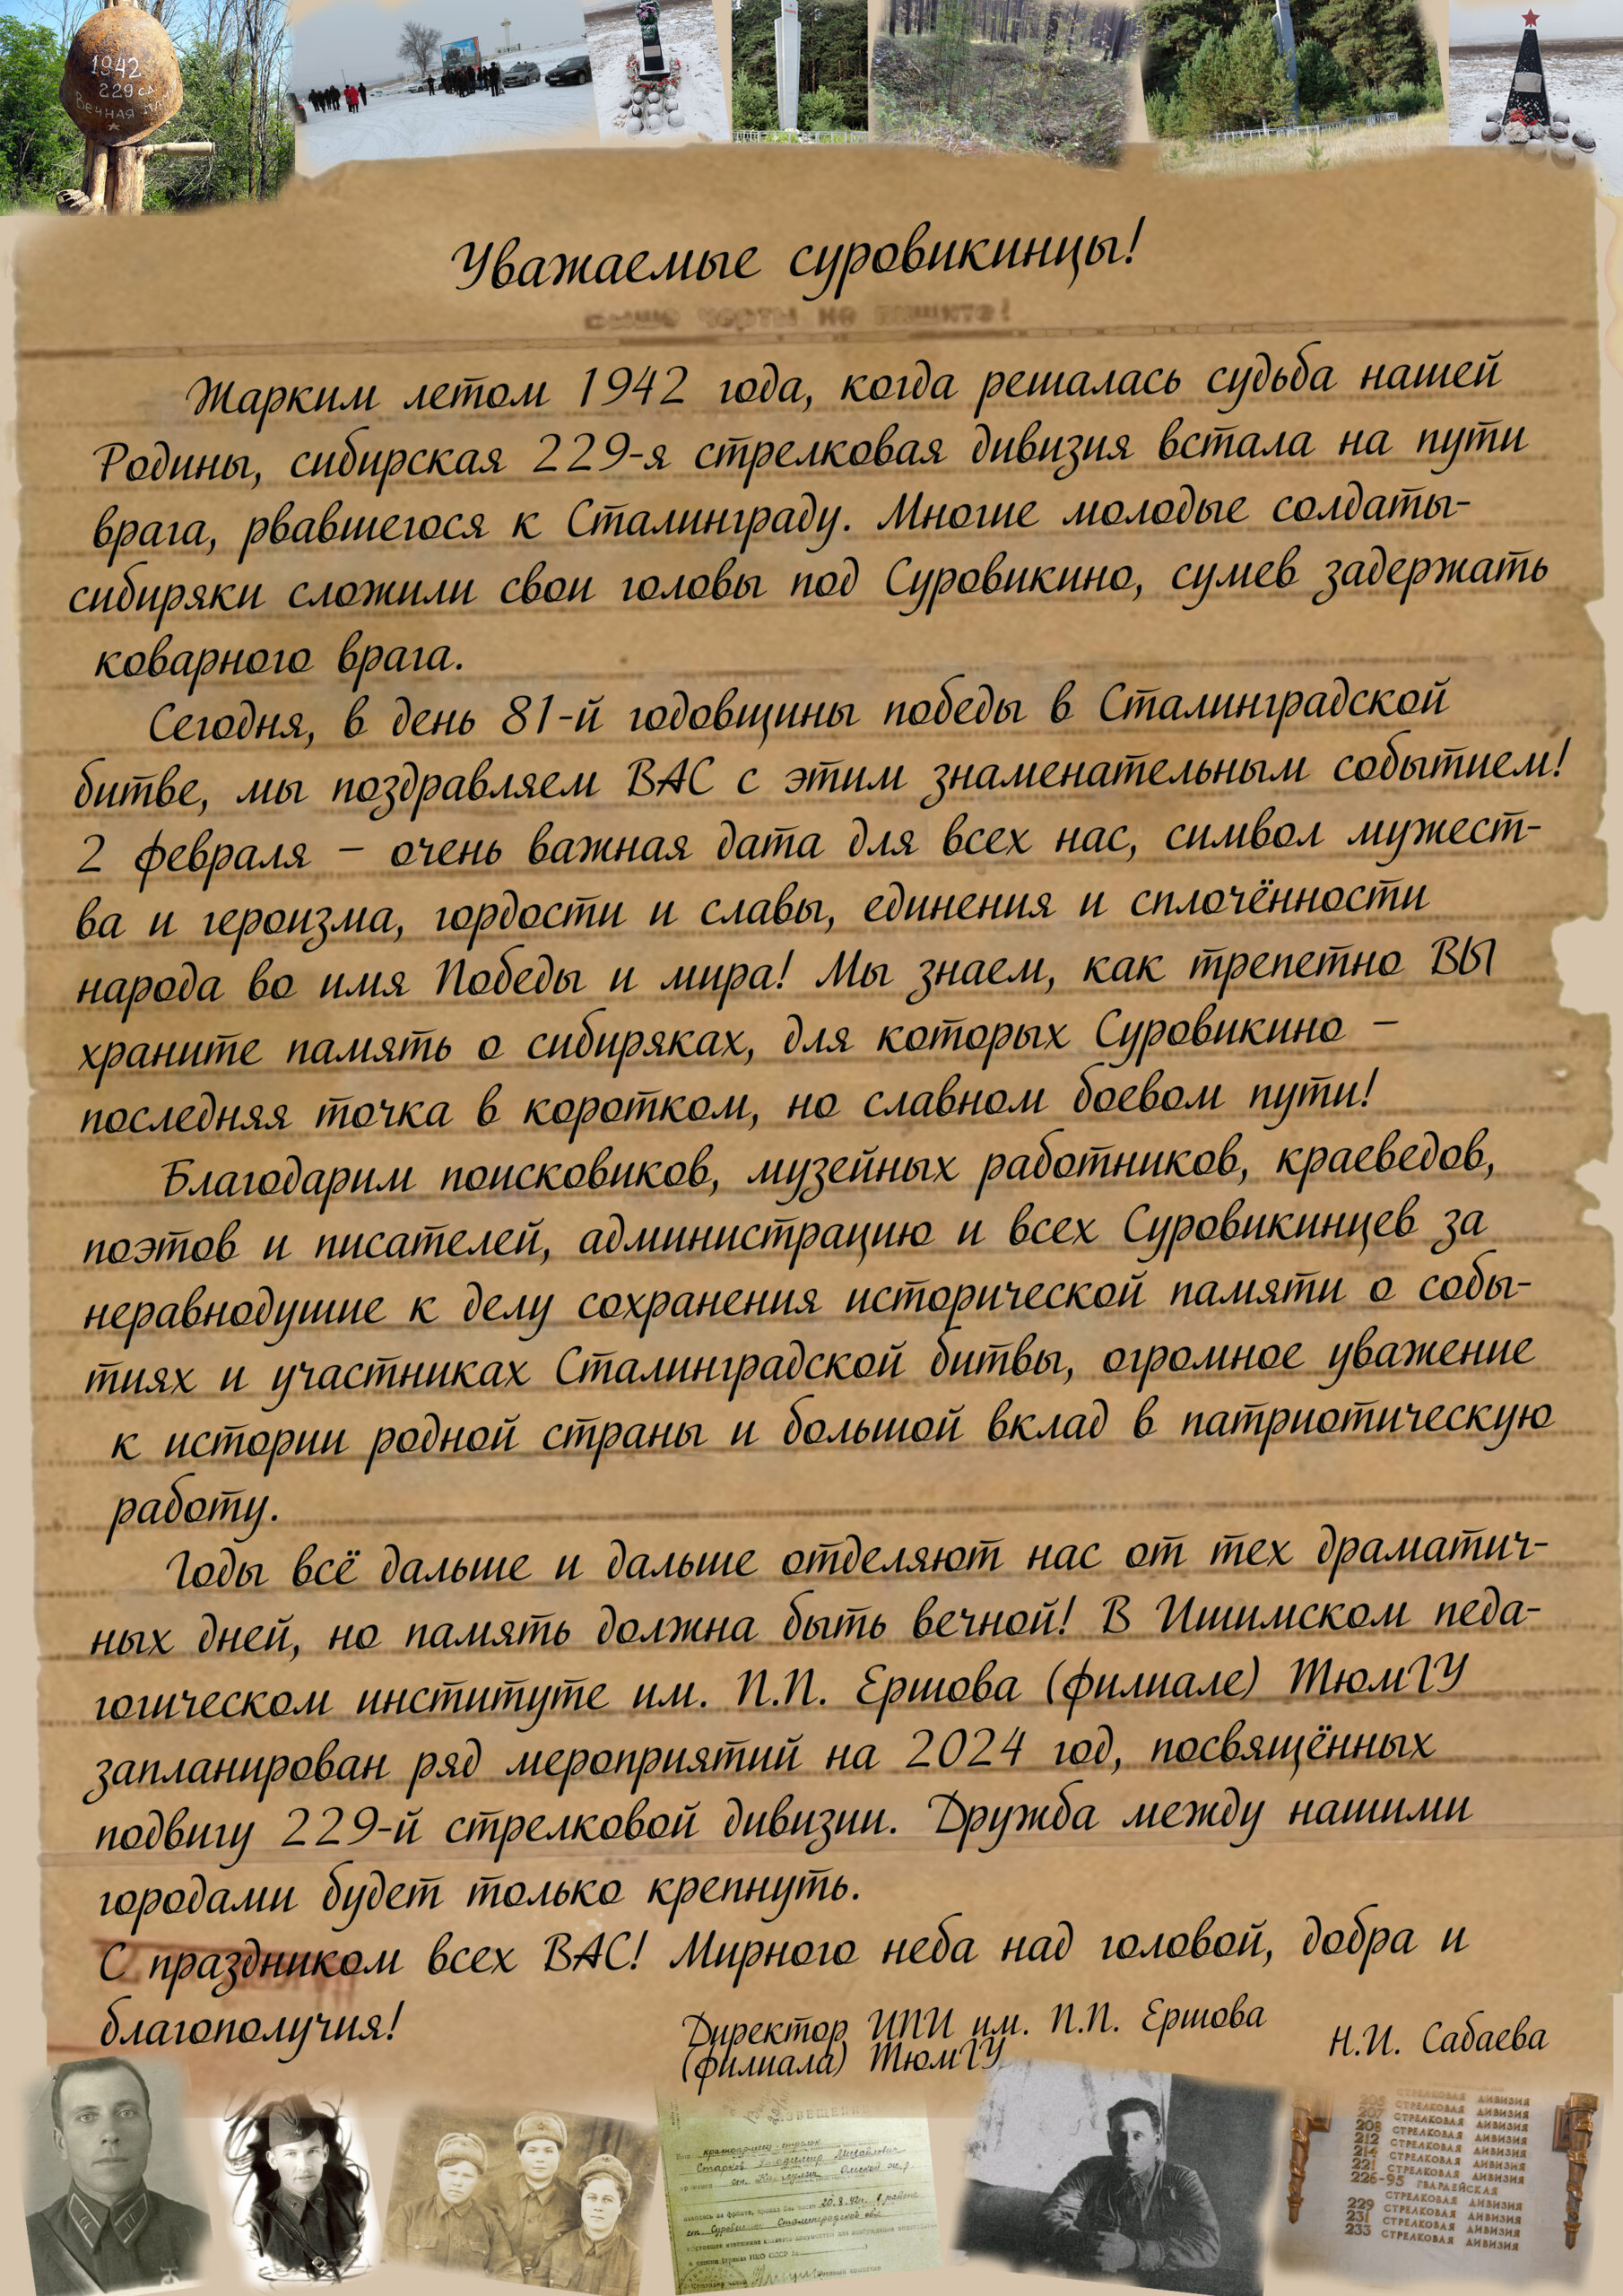 1942
229 сд
Вечная
Уважаемые суровикинцы!
Жарким летом 1942 года, когда решалась судьба нашей
Родины, сибирская 229-я стрелковая дивизия встала на пути
врага, рвавшегося к Сталинграду. Многие молодые солдаты-
сибиряки сложили свои головы под Суровикино, сумев задержать
коварного врага.
Сегодня, в день 81-й годовщины победы в Сталинградской
битве, мы поздравляем ВАС с этим знаменательным событием!
2 февраля – очень важная дата для всех нас, символ мужест-
ва и героизма, гордости и славы, единения и сплочённости
народа во имя Победы и мира! Мы знаем, как трепетно ВЫ
храните память о сибиряках, для которых Суровикино –
последняя точка в коротком, но славном боевом пути!
Благодарим поисковиков, музейных работников, краеведов,
поэтов и писателей, администрацию и всех Суровикинцев за
неравнодушие к делу сохранения исторической памяти о собы-
тиях и участниках Сталинградской битвы, огромное уважение
к истории родной страны и большой вклад в патриотическую
работу.
Годы всё дальше и дальше отделяют нас от тех драматич-
ных дней, но память должна быть вечной! В Ишимском педа-
гогическом институте им. П.П. Ершова (филиале) ТюмГУ
запланирован ряд мероприятий на 2024 год, посвящённых
подвигу 229-й стрелковой дивизии. Дружба между нашими
городами будет только крепнуть.
С праздником всех ВАС! Мирного неба над головой, добра и
благополучия!
Директор ИПИ им. П.П. Ершова
(филиала) ТюмГУ
Н.И. Сабаева
СТРЕЛКОВАЯ ДИВИЗИЯ
205 СТРЕЛКОВАЯ ДИВИЗИЯ
207 СТРЕЛКОВАЯ ДИВИЗИЯ
208 СТРЕЛКОВАЯ ДИВИЗИЯ
212 СТРЕЛКОВАЯ ДИВИЗИЯ
214 СТРЕЛКОВАЯ ДИВИЗИЯ
221 СТРЕЛКОВАЯ ДИВИЗИЯ
226-95 ГВАРДЕЙСКАЯ
СТРЕЛКОВАЯ ДИВИЗИЯ
229 СТРЕЛКОВАЯ ДИВИЗИЯ
231 СТРЕЛКОВАЯ ДИВИЗИЯ
233 СТРЕЛКОВАЯ ДИВИЗИЯ